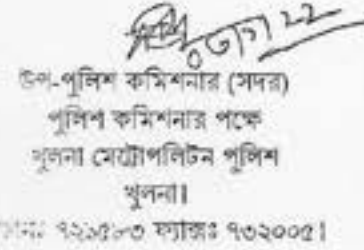 উপ-পুলিশ কমিশনার (সদর)
পুলিশ কমিশনার পক্ষে
খুলনা মেট্রোপলিটন পুলিশ
খুলনা।
ফ্যাক্সঃ ৭৩২০০৫।